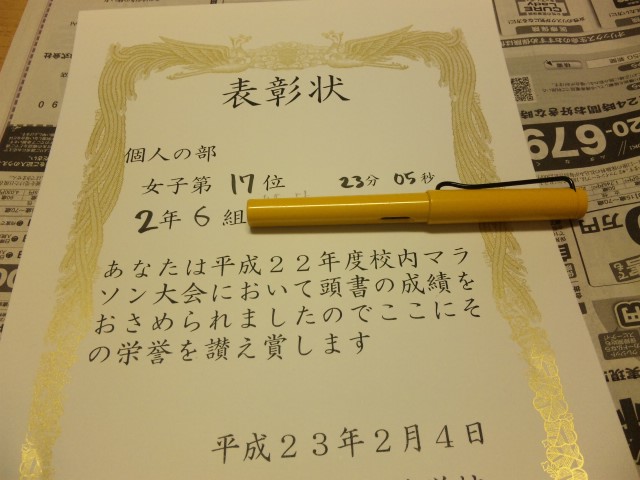 表彰状
個人の部
女子第 17 位 23分 05秒
2年 6 組
あなたは平成22年度校内マラ
ソン大会において頭書の成績を
おさめられましたのでここにそ
の栄誉を讃え賞します
平成23年2月4日
24時間お好きな時
20-679
万円
実現!